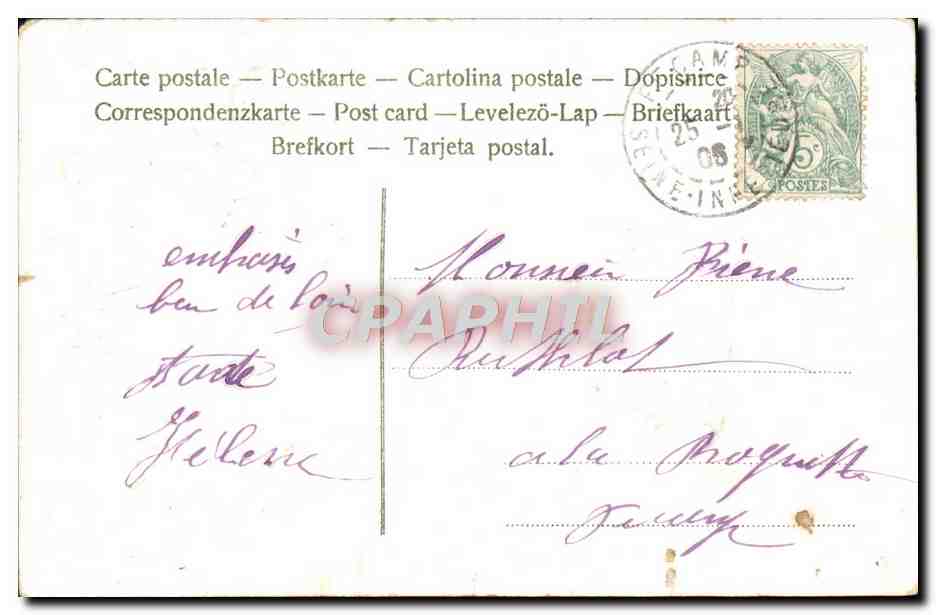 Carte postale — Postkarte — Cartolina postale — Dopisnice
Correspondenzkarte — Post card — Levelezö-Lap — Briefkaart
Brefkort — Tarjeta postal.
FECAMP
25 - 08
SEINE-INFÉRIEURE
5c
POSTES
ben de loin
Hélène
Monsieur Pierre
à la Roquette
CPAPHIL